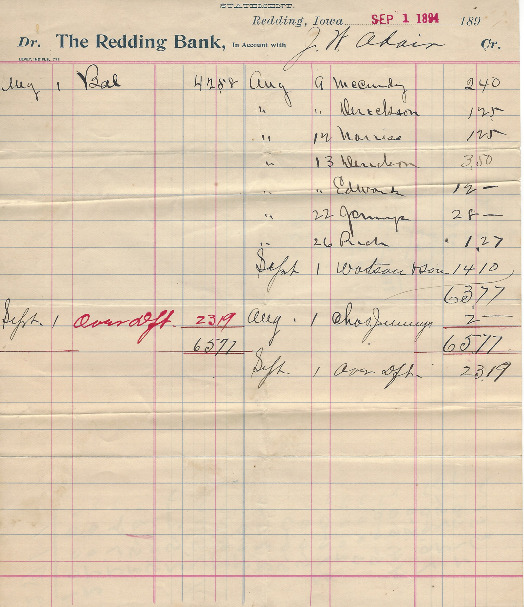 STATEMENT.
Redding, Iowa SEP 1 1894 189
Dr. The Redding Bank, In Account with J. W. Adair Cr.
Aug 1 Bal 4258 Aug 9 240
" " Derickson 125
" 12 Norris 125
" 13 Davidson 350
" " Edwards 12 —
" 22 Jennings 28 —
" 26 Rich 1.27
Sept 1 Watson & son 14 10
6377
Sept. 1 Over Dft. 2319 Aug. 1 Chas Jennings 2 —
6577 6577
Sept. 1 Over Dft. 2319